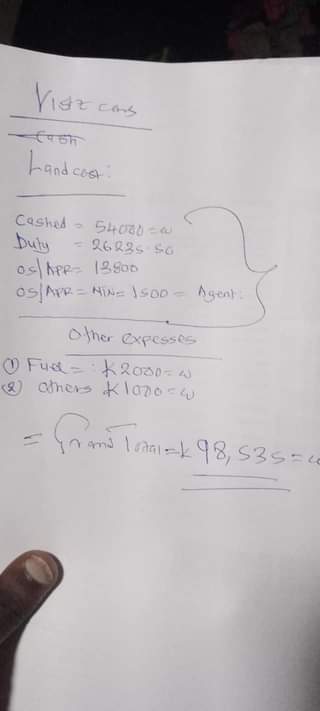 Vistz cons
Cash
Land cost:
Cashed = 54000=w
Duty = 26235.50
OS/APR= 13800
OS/APR = MIN= 1500 = Agent.
Other expesses
① Fuel = K2000=w
② others K1000=w
= Grand Total = K98,535=w